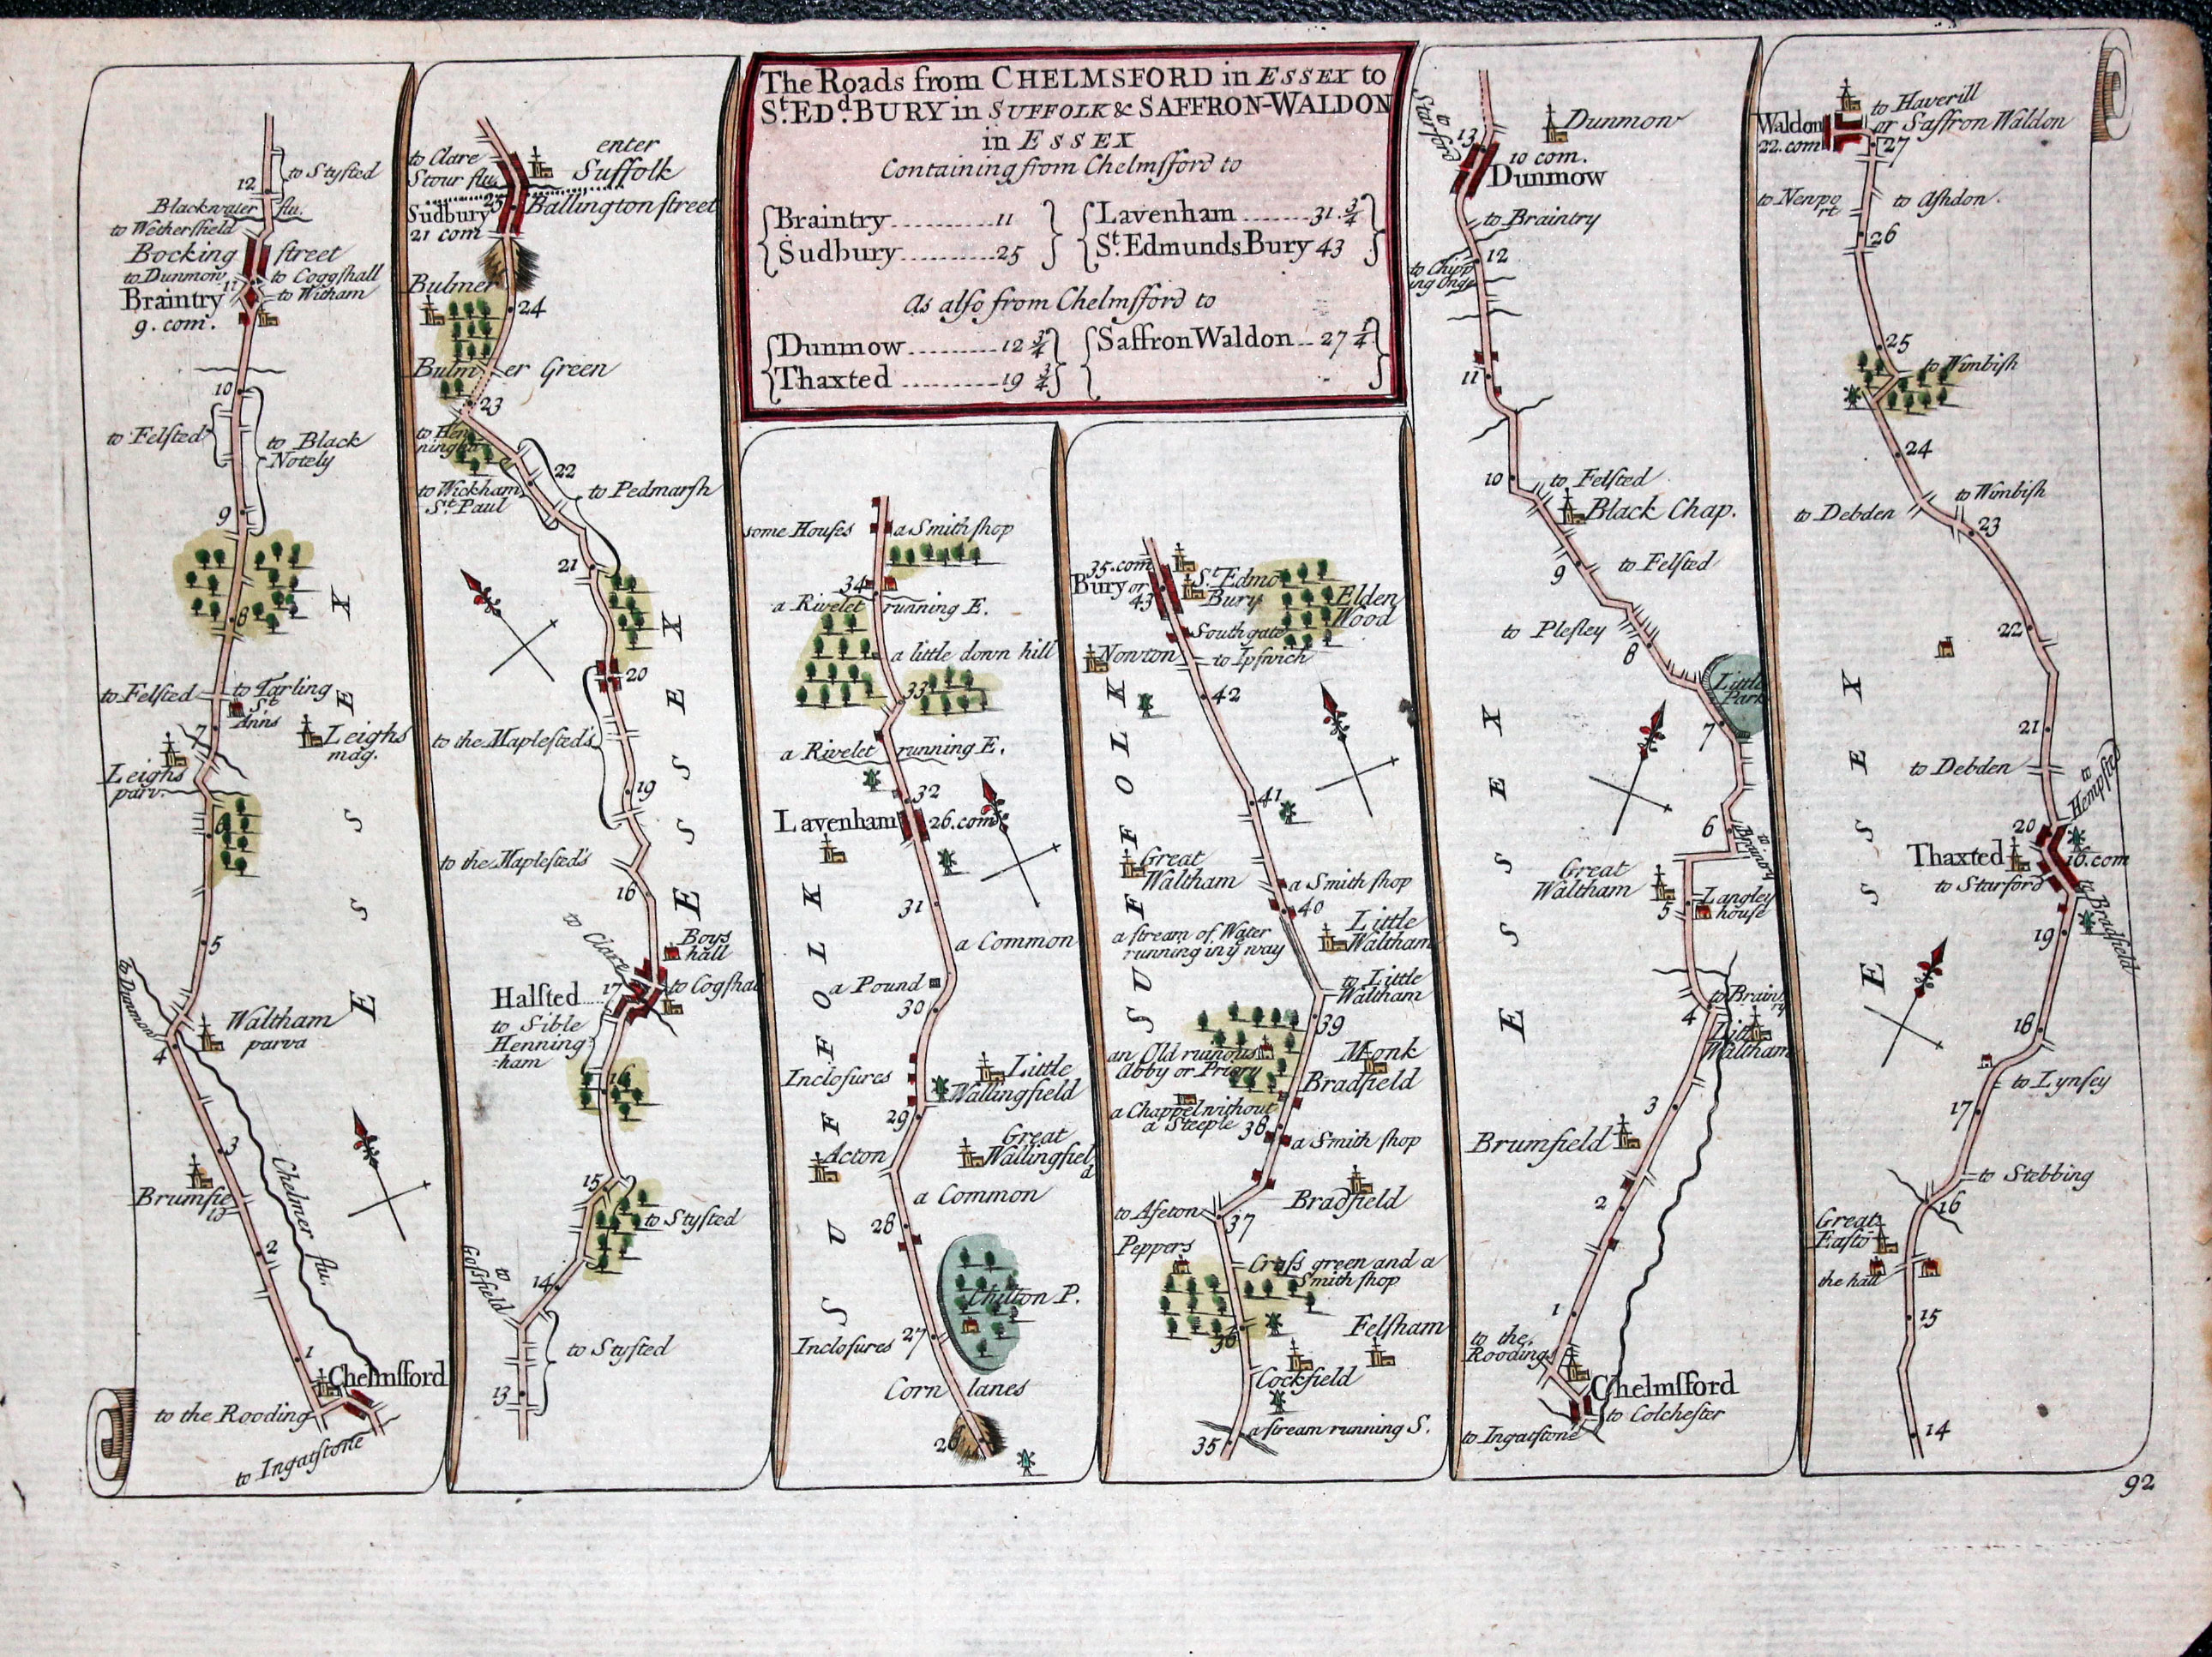 The Roads from CHELMSFORD in ESSEX to
St. EDd. BURY in SUFFOLK & SAFFRON-WALDON
in ESSEX
Containing from Chelmsford to
Braintry 11
Sudbury 25
Lavenham 31 3/4
St. Edmunds Bury 43
As also from Chelmsford to
Dunmow 12 3/4
Thaxted 19 3/4
Saffron Waldon 27 1/4
to Stysted
12
Blackwater flu.
to Wethersfield
Bocking street
to Dunmow
to Coggshall
11
Braintry
to Witham
9. com.
10
to Felsted
to Black
Notely
9
8
to Felsted
to Tarling
St.
Anns
7
Leighs
mag.
Leighs
parv.
6
5
to Dunmow
Waltham
parva
4
3
Brumfie
ld
Chelmer flu.
2
1
Chelmsford
to the Rooding
to Ingatstone
ESSEX
to Clare
enter
Suffolk
Stour flu.
25
Sudbury
Ballington street
21 com
Bulmer
24
Bulmer Green
23
to Hen
ningham
22
to Wickham
St. Paul
to Pedmarsh
21
20
to the Maplested's
19
to the Maplested's
18
to Clare
Boys
hall
17
Halsted
to Cogshal
to Sible
Henning
=ham
16
15
to Stysted
to
Gosfield
14
to Stysted
13
ESSEX
some Houses
a Smith shop
34
a Rivelet running E.
a little down hill
33
a Rivelet running E.
32
Lavenham
26. com
31
a Common
a Pound
30
Inclosures
Little
Wallingfield
29
Great
Wallingfield
Acton
a Common
28
Chilton P.
27
Inclosures
Corn lanes
26
SUFFOLK
35. com
Bury or
43
St. Edmo
Bury
Elden
Wood
Southgate
Nowton
to Ipswich
42
41
Great
Waltham
a Smith shop
40
a stream of Water
running in ye way
Little
Waltham
to Little
Waltham
39
an Old ruinous
Abby or Priory
Monk
Bradfield
a Chappel without
a Steeple
38
a Smith shop
Bradfield
to Aseton
37
Peppers
Cross green and a
Smith shop
36
Felsham
Cockfield
a stream running S.
35
SUFFOLK
to
Starford
Dunmow
13
10 com.
Dunmow
to Braintry
12
to Chipp
ing Ongr
11
10
to Felsted
Black Chap.
9
to Felsted
to Plesley
8
Little
Park
7
6
to
Braintry
Great
Waltham
5
Langley
house
to Brain
try
4
Little
Waltham
3
Brumfield
2
1
to the
Roodings
Chelmsford
to Colchester
to Ingatstone
ESSEX
Waldon
22. com
to Haverill
or Saffron Waldon
27
to Newpo
rt
to Ashdon.
26
25
to Wimbish
24
to Wimbish
to Debden
23
22
21
to Debden
to
Hempsted
20
Thaxted
16. com
to Starford
to
Bradfield
19
18
to Lynsey
17
to Stebbing
16
Great
Easto
the hall
15
14
ESSEX
92